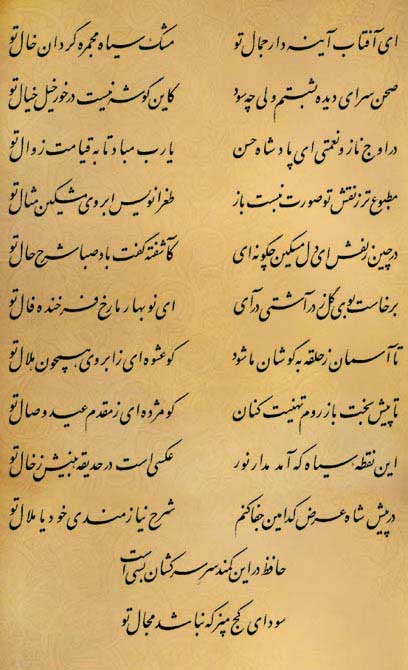 ای آفتاب آینه دار جمال تو مشک سیاه مجمره گردان خال تو
صحن سرای دیده بشستم ولی چه سود کاین گوشه نیست در خور خیل خیال تو
در اوج ناز و نعمتی ای پادشاه حسن یا رب مباد تا به قیامت زوال تو
مطبوع تر ز نقش تو صورت نبست باز طغرانویس ابروی مشکین مثال تو
در چین زلفش ای دل مسکین چگونه ای کآشفته گفت باد صبا شرح حال تو
برخاست بوی گل ز در آشتی درآی ای نوبهار ما رخ فرخنده فال تو
تا آسمان ز حلقه به گوشان ما شود کو عشوه ای ز ابروی همچون هلال تو
تا پیش بخت باز روم تهنیت کنان کو مژده ای ز مقدم عید وصال تو
این نقطه سیاه که آمد مدار نور عکسی است در حدیقه بینش ز خال تو
در پیش شاه عرض کدامین جفا کنم شرح نیازمندی خود یا ملال تو
حافظ در این کمند سر سرکشان بسی است
سودای کج مپز که نباشد مجال تو